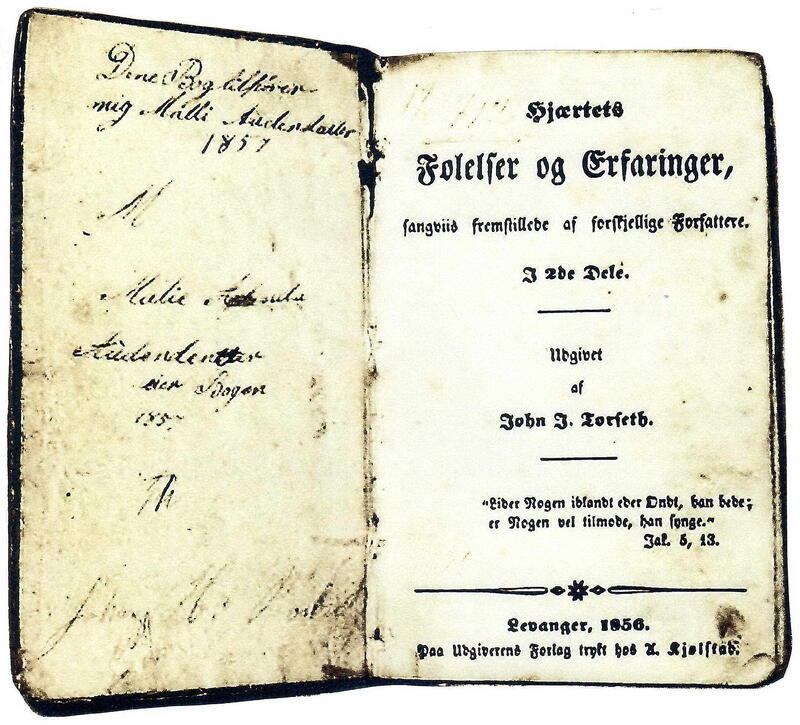 Dene Bog tilhører
mig Malli Audensdatter
1857
M
Malie
eier Bogen
185
Th
Hjærtets
Følelser og Erfaringer,
sangviis fremstillede af forskjellige Forfattere.
I 2de Dele.
Udgivet
af
John J. Torseth.
"Lider Nogen iblandt eder Ondt, han bede;
er Nogen vel tilmode, han synge."
Jak. 5, 13.
Levanger, 1856.
Paa Udgiverens Forlag trykt hos A. Kjølstad.